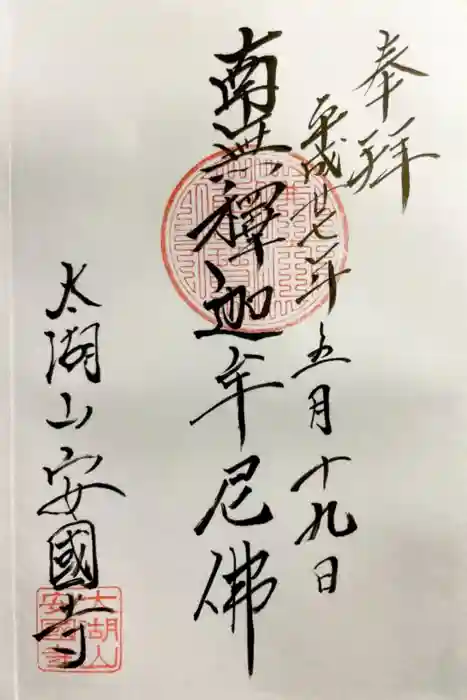 奉拝
平成廿七年五月十九日
南無釋迦牟尼佛
太湖山安國寺
太湖山
安国寺